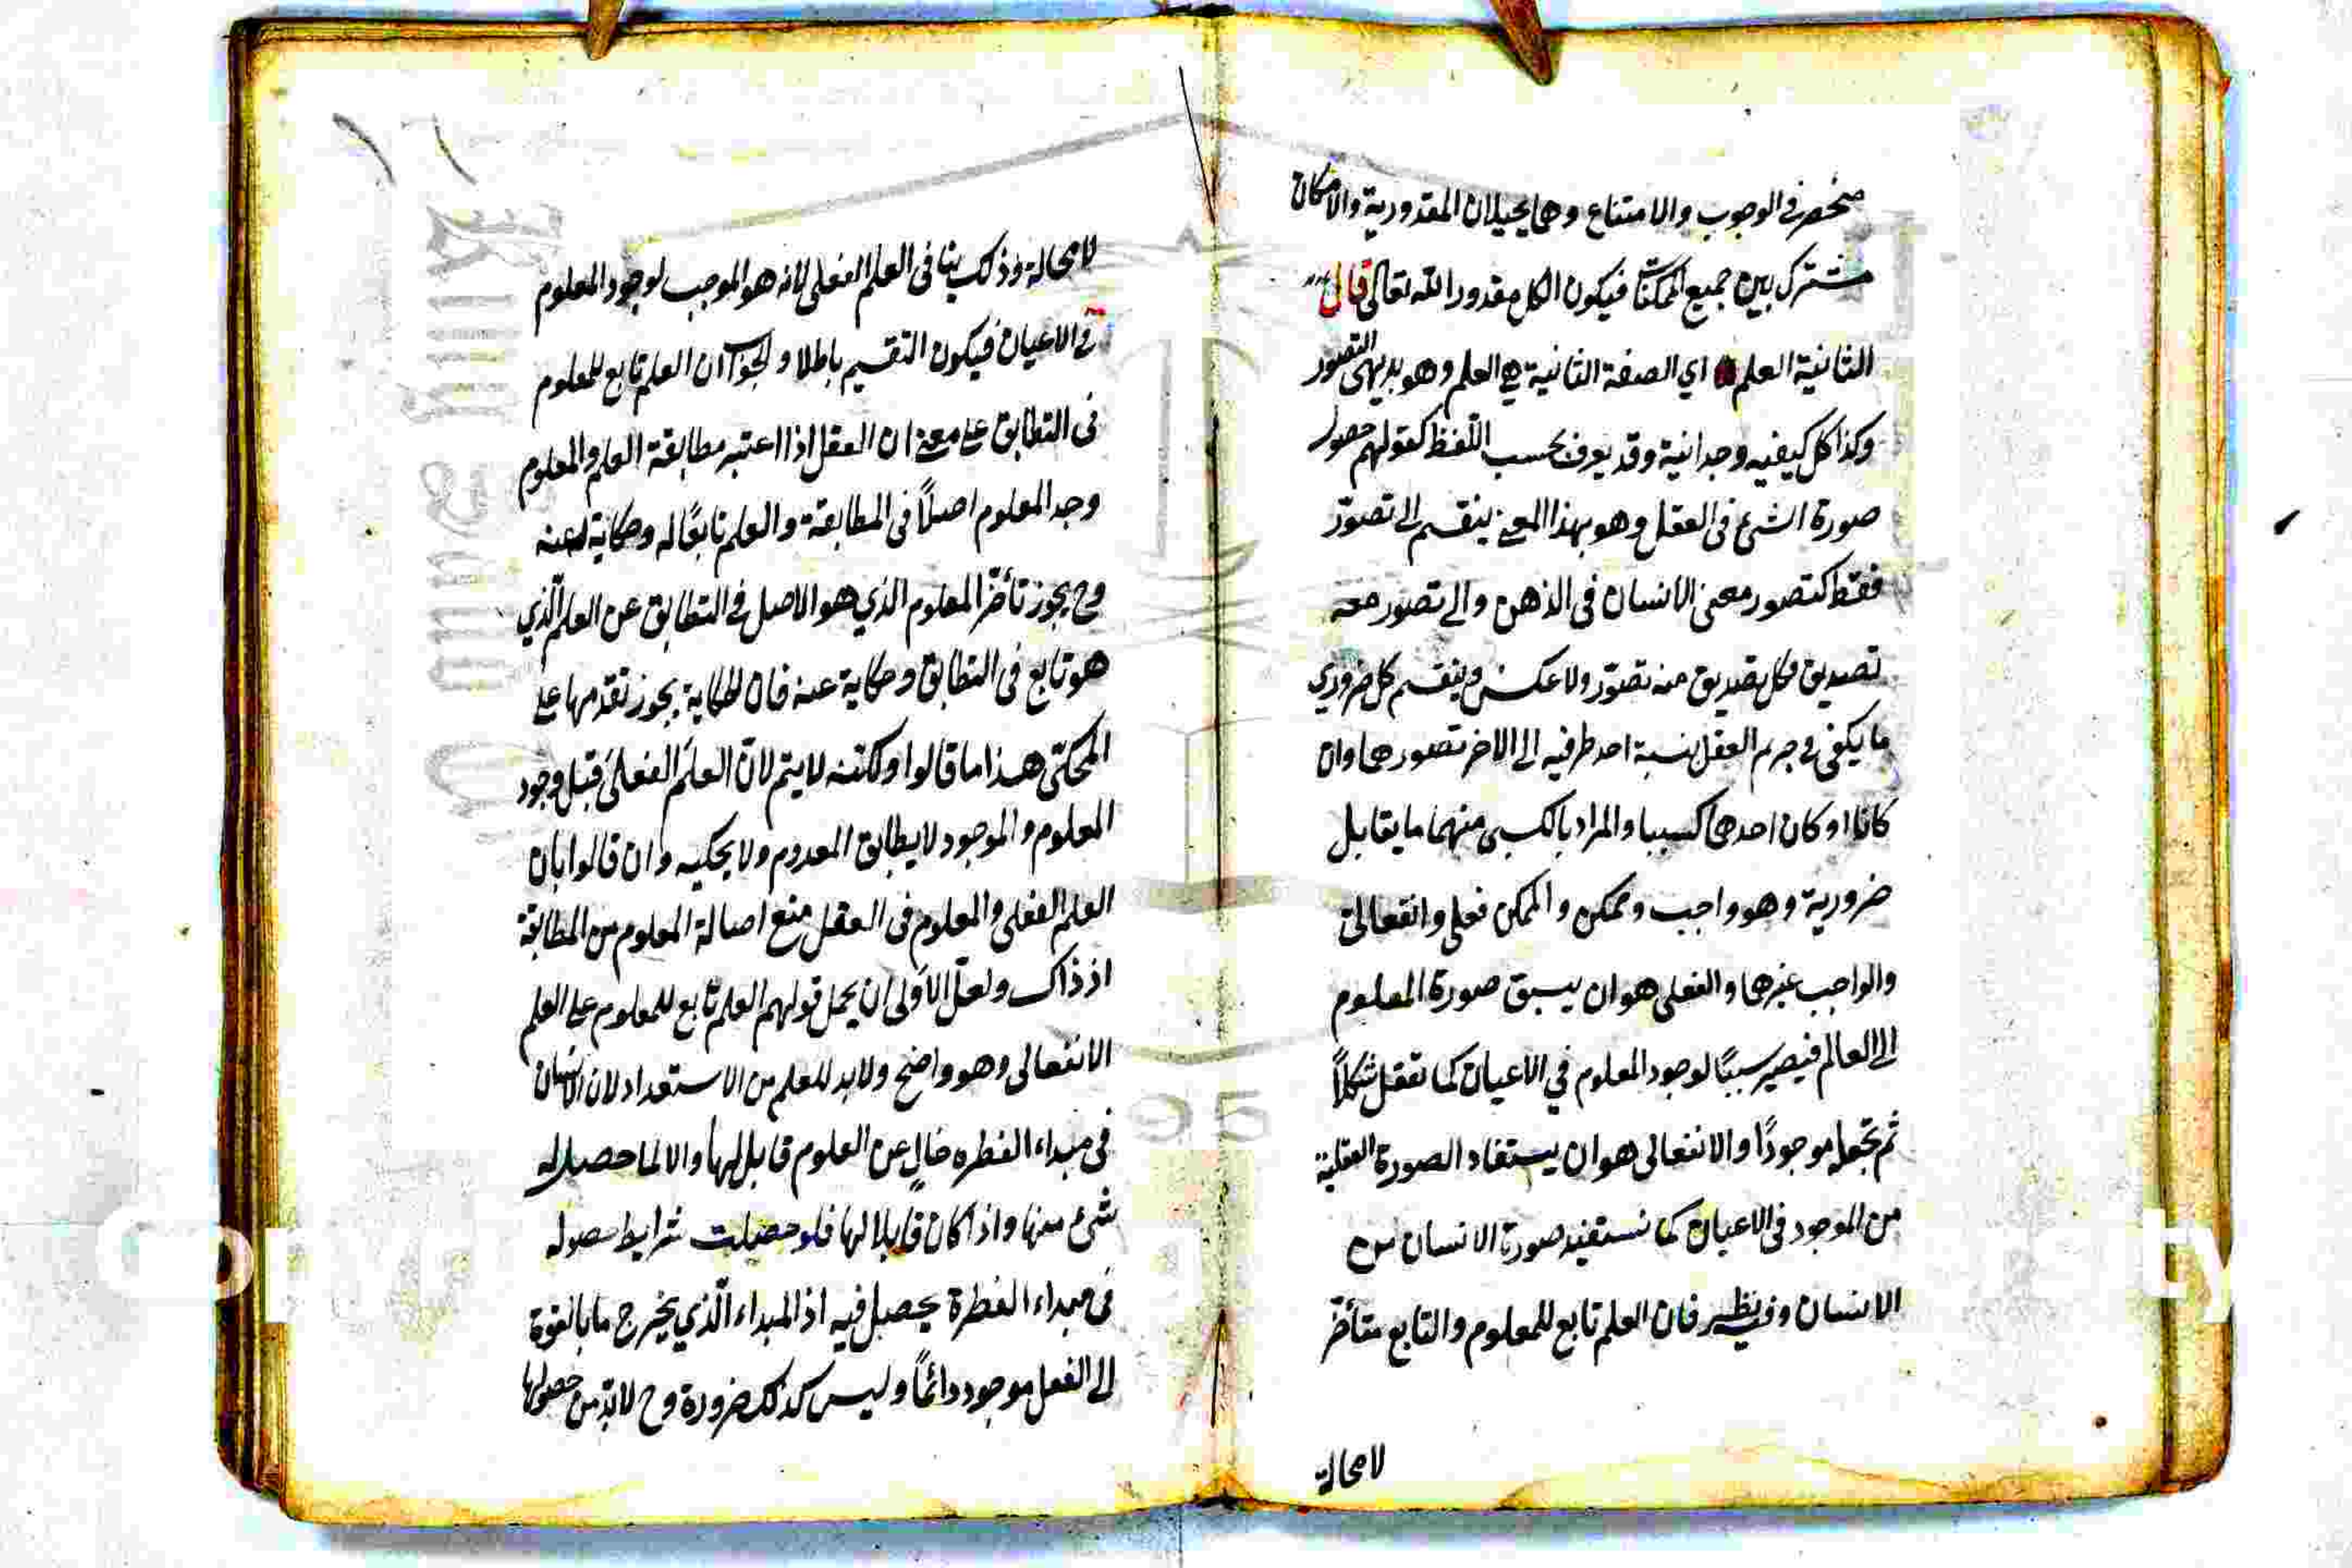 منحصر في الوجوب والامتناع وهما يحيلان المقدورية والامكان
مشترك بين جميع الممكنات فيكون الكل مقدورا لله تعالى قال
الثانية العلم اي الصفة الثانية هي العلم وهو بديهي التصور
وكذا كل كيفيه وجدانية وقد يعرف بحسب اللفظ كقولهم حصول
صورة الشئ في العقل وهو بهذا المعنى ينقسم الى تصوّر
فقط كتصور معنى الانسان في الذهن والى تصور معه
تصديق فكل تصديق منه تصوّر ولا عكس وينقسم كل ضروري
ما يكفي في جزم العقل بنسبة احد طرفيه الى الاخر تصورهما وان
كانا او كان احدهما كسبيا والمراد بالكسبي منهما ما يقابل
ضرورية وهو واجب وممكن والممكن فعلي وانفعالي
والواجب غيرهما والفعلي هو ان يسبق صورة المعلوم
الى العالم فيصير سببًا لوجود المعلوم في الاعيان كما تعقل شكلاً
ثم تجعله موجودًا والانفعالي هو ان يستفاد الصورة العقلية
من الموجود في الاعيان كما نستفيد صورة الانسان من
الانسان وفيه نظر فان العلم تابع للمعلوم والتابع متأخر
لا محالة
لا محالة وذلك ينافي العلم الفعلي لانه هو الموجب لوجود المعلوم
في الاعيان فيكون التقسيم باطلا والجواب ان العلم تابع للمعلوم
في التطابق على معنى ان العقل اذا اعتبر مطابقة العلم والمعلوم
وجد المعلوم اصلاً في المطابقة والعلم تابعًا له وحكاية عنه
وح يجوز تأخر المعلوم الذي هو الاصل في التطابق عن العلم الّذي
هو تابع في التطابق وحكاية عنه فان الحكاية يجوز تقدمها على
المحكيّ هذا ما قالوا ولكنه لا يتم لانّ العلم الفعلي قبل وجود
المعلوم والموجود لا يطابق المعدوم ولا يحكيه وان قالوا بان
العلم الفعلي والمعلوم في العقل منع اصالة المعلوم من المطابقة
اذ ذاك ولعلّ الاولى ان يحمل قولهم العلم تابع للمعلوم على العلم
الانفعالي وهو واضح ولا بد للعلم من الاستعداد لان الانسان
في مبداء الفطره خالٍ عن العلوم قابل لها والا لما حصل له
شئ منها واذا كان قابلا لها فلو حصلت شرايط حصوله
في مبداء الفطرة يحصل فيه اذ المبداء الّذي يخرج ما بالقوة
الى الفعل موجود دائمًا وليس كذلك ضرورة وح لا بدّ من حصولها